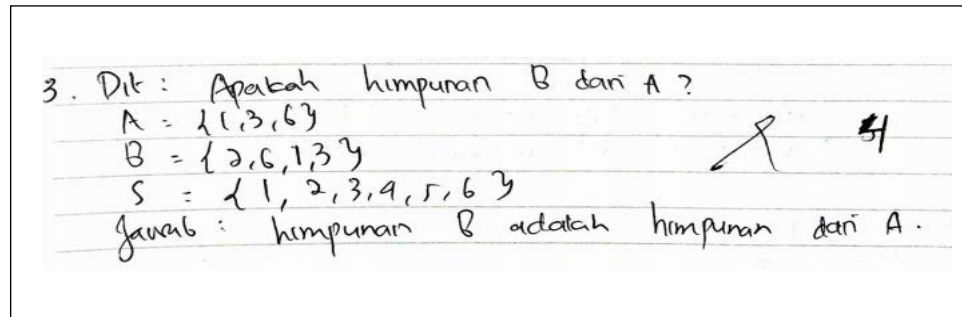 3. Dit : Apakah himpunan B dari A ?
A = {1,3,6}
B = {2,6,1,3}
S = {1, 2, 3, 4, 5, 6}
4
Jawab : himpunan B adalah himpunan dari A.